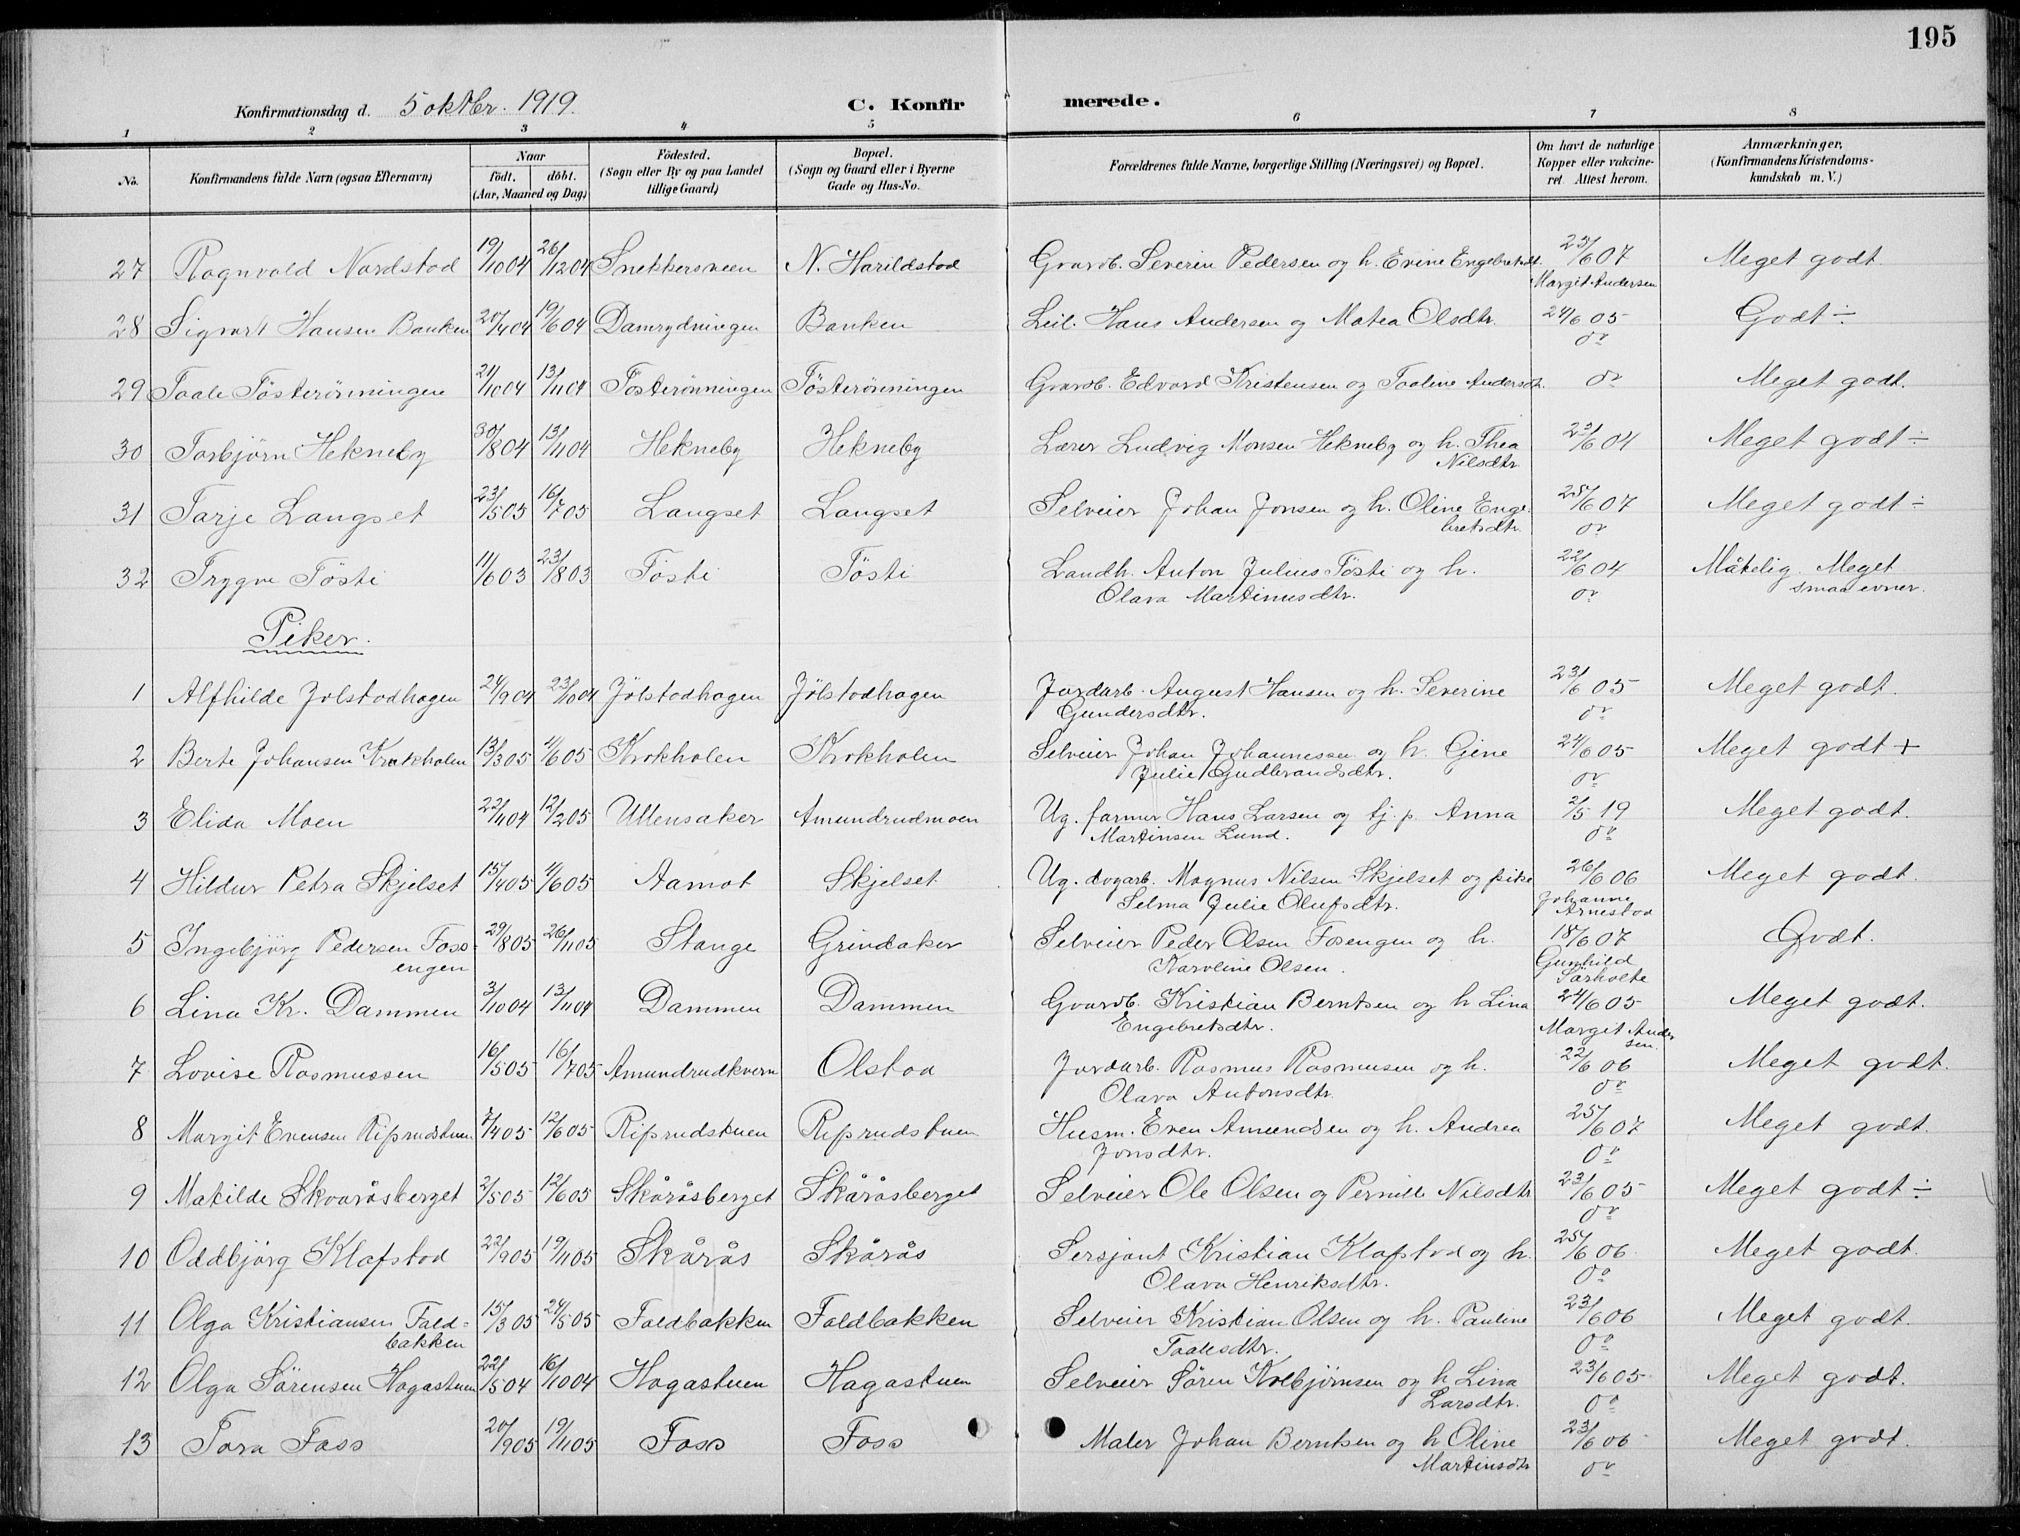 195
Konfirmationsdag d. 5 oktbr. 1919.
C. Konfirmerede.
1 2 3 4 5 6 7 8
No.
Konfirmandens fulde Navn (ogsaa Efternavn)
Naar
födt. döbt.
(Aar, Maaned og Dag)
Födested.
(Sogn eller By og paa Landet
tillige Gaard)
Bopæl.
(Sogn og Gaard eller i Byerne
Gade og Hus-No.
Forældrenes fulde Navne, borgerlige Stilling (Næringsvei) og Bopæl.
Om havt de naturlige
Kopper eller vakcine-
ret. Attest herom.
Anmærkninger,
(Konfirmandens Kristendoms-
kundskab m. V.)
27 Ragnvald Nordstad 19/10 04 26/12 04 Snekkersveen N. Harildstad Gaardb. Severin Pedersen og h. Evine Engebretsdt. 23/6 07 Meget godt.
Margit Andersen
28 Sigvart Hansen Banken 20/4 04 19/6 04 Damrydningen Banken Leil. Hans Andersen og Matea Olsdtr. 24/6 05 Godt ÷
do
29 Taale Tösterönningen 21/10 04 13/11 04 Tösterönningen Tösterönningen Gaardb. Edvard Kristensen og Taaline Andersdt. do Meget godt.
30 Torbjörn Hekneby 30/8 04 13/11 04 Hekneby Hekneby Lærer Ludvig Monsen Hekneby og h. Thea 23/6 04 Meget godt ÷
Nilsdtr
31 Tarje Langset 23/5 05 16/7 05 Langset Langset Selveier Johan Jonsen og h. Oline Enge- 25/6 07 Meget godt ÷
bretsdtr. do
32 Trygve Tösti 11/6 03 23/8 03 Tösti Tösti Landh. Anton Julius Tösti og h. 22/6 04 Måtelig. Meget
Olava Martinusdtr. do smaa evner.
Piker.
1 Alfhilde Jolstadhagen 24/9 04 23/10 04 Jölstadhagen Jölstadhagen Jordarb. August Hansen og h. Severine 23/6 05 Meget godt.
Gundersdtr. do
2 Berte Johansen Krokholen 13/3 05 11/6 05 Krokholen Krokholen Selveier Johan Johannessen og h. Gine 24/6 05 Meget godt +
Julie Gudbrandsdtr. do
3 Elida Moen 22/11 04 12/2 05 Ullensaker Amundrudmoen Ug. farmer Hans Larsen og tj. p. Anna 2/5 19 Meget godt.
Martinsen Lund. do
4 Hildur Petra Skjelset 15/4 05 11/6 05 Aamot Skjelset Ug. dagarb. Magnus Nilsen Skjelset og pike 26/6 06 Meget godt.
Selma Julie Olufsdtr. Johanne
Arnestad
5 Ingebjörg Pedersen Foss- 29/8 05 26/11 05 Stange Grindaker Selveier Peder Olsen Fosengen og h. 18/6 07 Godt.
engen Karoline Olsen. Gunhild
Sörholte
6 Lina Kr. Dammen 3/10 04 13/11 04 Dammen Dammen Gaardb. Kristian Berntsen og h Lina 24/6 05 Meget godt.
Engebretsdtr. Marget Ander
sen.
7 Lovise Rasmussen 16/5 05 16/7 05 Amundrudkvern Olstad Jordarb. Rasmus Rasmusen og h. 22/6 06 Meget godt.
Olava Antonsdtr. do
8 Margit Evensen Riprudstuen 7/4 05 12/6 05 Riprudstuen Riprudstuen Husm. Even Amundsen og h. Andrea 25/6 07 Meget godt.
Jonsdtr. Do
9 Matilde Skvaråsberget 2/5 05 12/6 05 Skåråsberget Skåråsberget Selveier Ole Olsen og Pernille Nilsdtr 23/6 05 Meget godt ÷
Do
10 Oddbjörg Klafstad 22/9 05 19/11 05 Skårås Skårås Sersjant Kristian Klafstad og h. 25/6 06 Meget godt.
Olava Henriksdtr. Do
11 Olga Kristiansen Fald- 15/3 05 24/5 05 Faldbakken Faldbakken Selveier Kristian Olsen og h. Pauline 23/6 06 Meget godt.
bakken Taalesdtr. Do
12 Olga Sörensen Hagastuen 22/5 04 16/10 04 Hagastuen Hagastuen Selveier Sören Kolbjörnsen og h Lina 23/6 05 Meget godt.
Larsdtr. Do
13 Tora Foss 20/9 05 19/11 05 Foss Foss Maler Johan Berntsen og h Oline 23/6 06 Meget godt.
Martinsdtr do